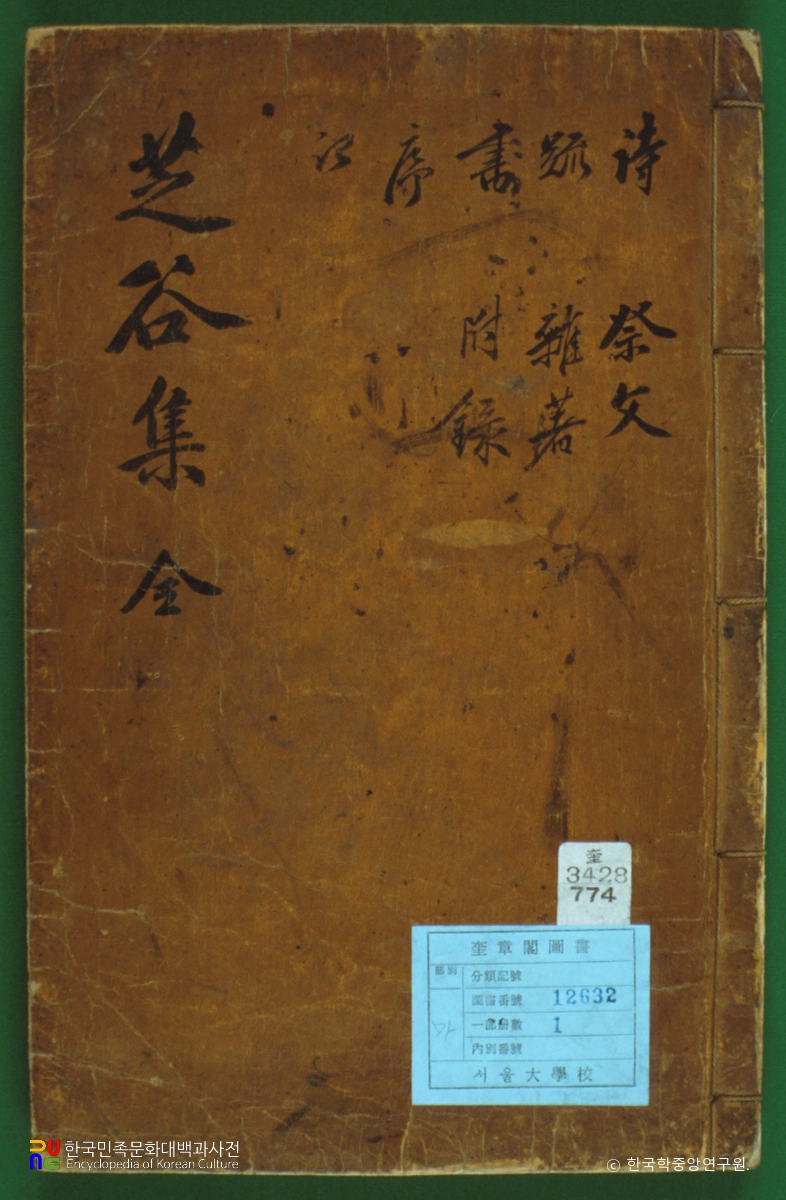 詩
疏
書
序
記
祭文
雜著
附錄
芝谷集 全
奎
3428
774
奎章閣圖書
部別
分類記號
圖書番號 12632
一部冊數 1
內別番號
서울大學校
한국민족문화대백과사전
Encyclopedia of Korean Culture
© 한국학중앙연구원.